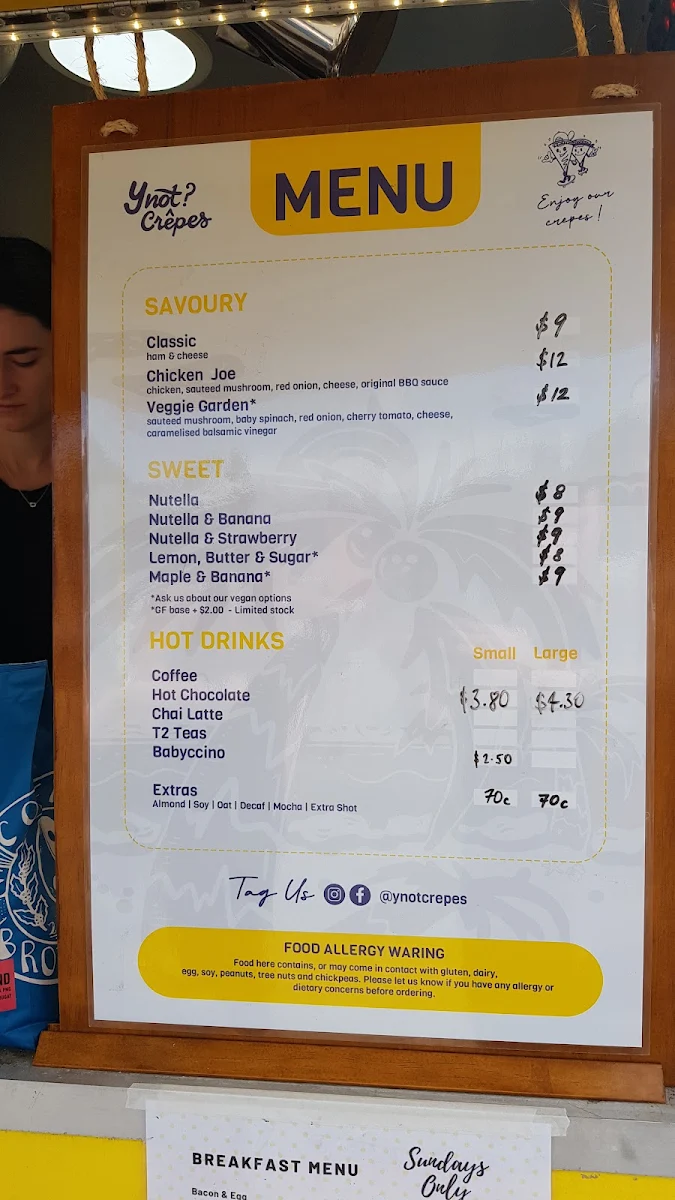 Ynot?
Crêpes
MENU
Enjoy our
crepes !
SAVOURY
Classic $9
ham & cheese
Chicken Joe $12
chicken, sauteed mushroom, red onion, cheese, original BBQ sauce
Veggie Garden* $12
sauteed mushroom, baby spinach, red onion, cherry tomato, cheese,
caramelised balsamic vinegar
SWEET
Nutella $8
Nutella & Banana $9
Nutella & Strawberry $9
Lemon, Butter & Sugar* $8
Maple & Banana* $9
*Ask us about our vegan options
*GF base + $2.00 - Limited stock
HOT DRINKS Small Large
Coffee
Hot Chocolate $3.80 $4.30
Chai Latte
T2 Teas
Babyccino $2.50
Extras 70c 70c
Almond | Soy | Oat | Decaf | Mocha | Extra Shot
Tag Us @ynotcrepes
FOOD ALLERGY WARING
Food here contains, or may come in contact with gluten, dairy,
egg, soy, peanuts, tree nuts and chickpeas. Please let us know if you have any allergy or
dietary concerns before ordering.
BREAKFAST MENU Sundays
Only
Bacon & Egg